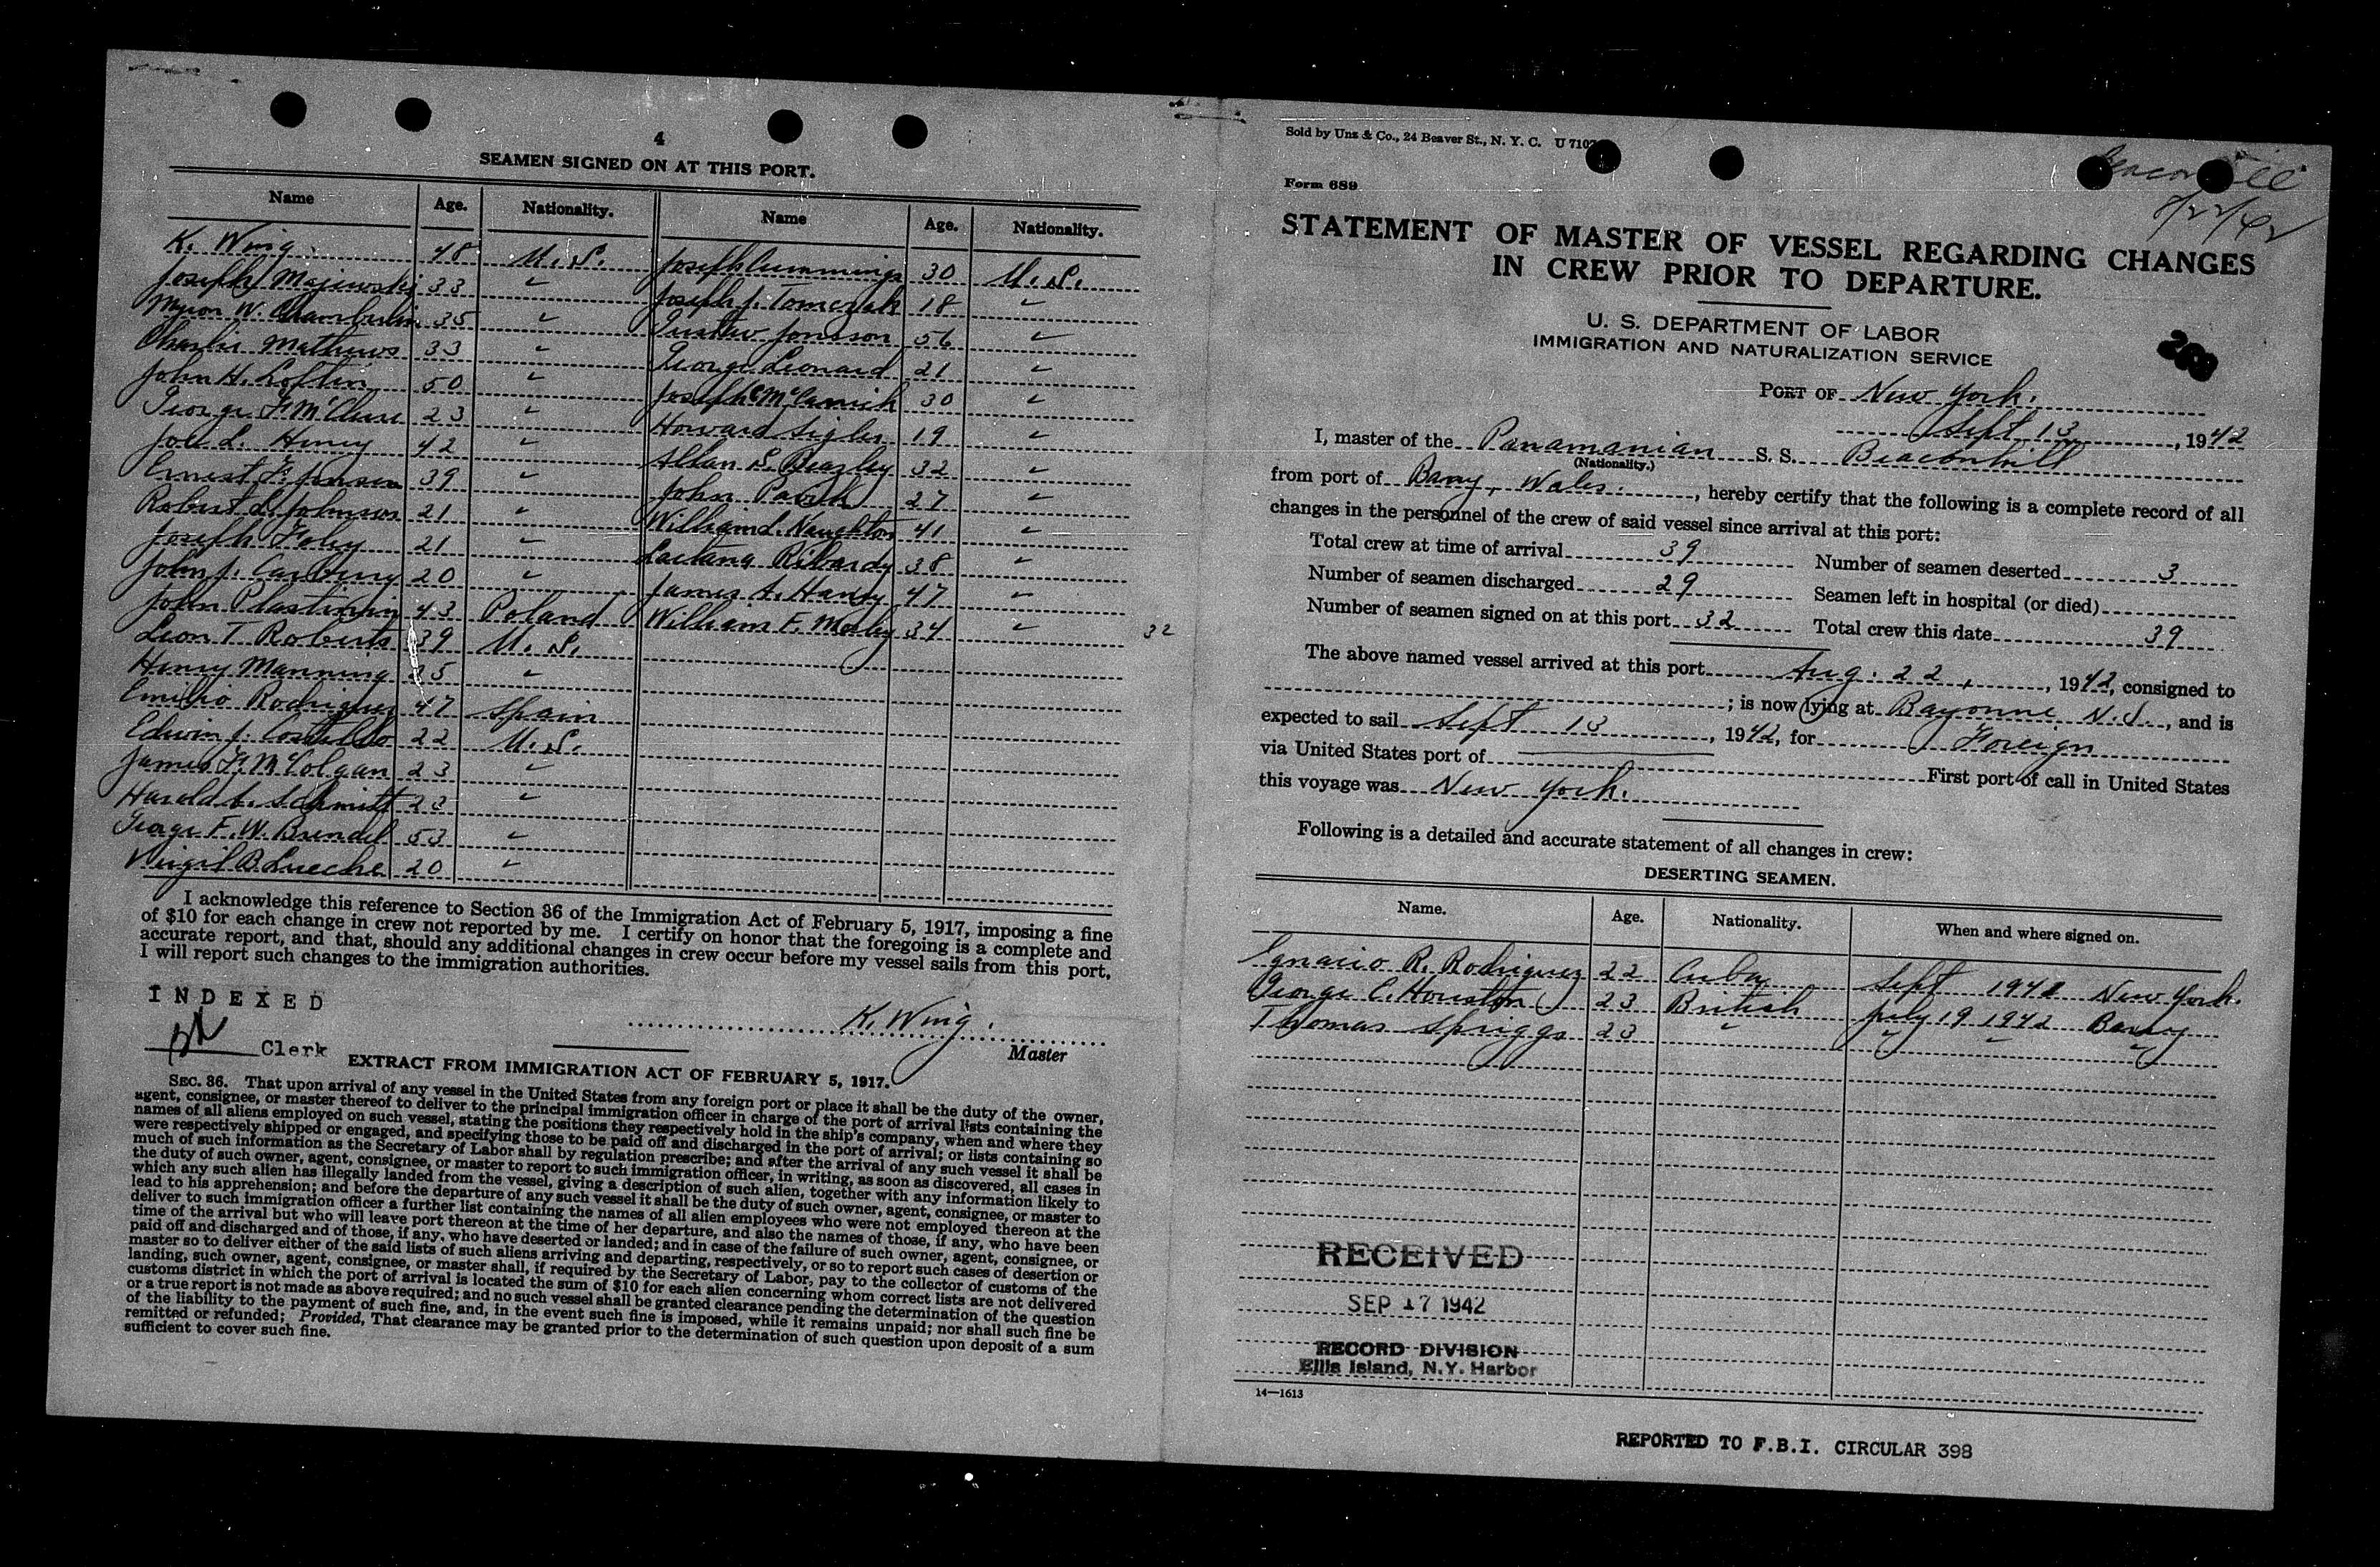 4
SEAMEN SIGNED ON AT THIS PORT.
Name Age. Nationality. Name Age. Nationality.
K. Wing 48 U.S. Joseph Cummings 30 U.S.
Joseph Majewski 33 " Joseph J. Tomczak 18 "
Myron W. Chamberlin 35 " Gustav Jonsson 56 "
Charlie Mathews 33 " George Leonard 21 "
John H. Loftin 50 " Joseph 30 "
George F. McClure 23 " Howard Sigler 19 "
Joe L. Henry 42 " Allan S. Beazley 32 "
Ernest F. Jensen 39 " John 27 "
Robert L. Johnson 21 " William L. Naughton 41 "
Joseph Foley 21 " 38 "
John J. 20 " James A. Haney 47 "
John 43 Poland William F. Mosley 34 " 32
Leon T. Roberts 39 U.S.
Henry Manning 25 "
Emilio Rodriguez 47 Spain
Edwin J. Costello 22 U.S.
James F. McColgan 23 "
Harold C. Schmitt 23 "
George F. W. Brendel 53 "
Virgil B. Luecke 20 "
I acknowledge this reference to Section 36 of the Immigration Act of February 5, 1917, imposing a fine
of $10 for each change in crew not reported by me. I certify on honor that the foregoing is a complete and
accurate report, and that, should any additional changes in crew occur before my vessel sails from this port,
I will report such changes to the immigration authorities.
INDEXED
K. Wing.
Clerk
Master
EXTRACT FROM IMMIGRATION ACT OF FEBRUARY 5, 1917.
SEC. 36. That upon arrival of any vessel in the United States from any foreign port or place it shall be the duty of the owner,
agent, consignee, or master thereof to deliver to the principal immigration officer in charge of the port of arrival lists containing the
names of all aliens employed on such vessel, stating the positions they respectively hold in the ship's company, when and where they
were respectively shipped or engaged, and specifying those to be paid off and discharged in the port of arrival; or lists containing so
much of such information as the Secretary of Labor shall by regulation prescribe; and after the arrival of any such vessel it shall be
the duty of such owner, agent, consignee, or master to report to such immigration officer, in writing, as soon as discovered, all cases in
which any such alien has illegally landed from the vessel, giving a description of such alien, together with any information likely to
lead to his apprehension; and before the departure of any such vessel it shall be the duty of such owner, agent, consignee, or master to
deliver to such immigration officer a further list containing the names of all alien employees who were not employed thereon at the
time of the arrival but who will leave port thereon at the time of her departure, and also the names of those, if any, who have been
paid off and discharged and of those, if any, who have deserted or landed; and in case of the failure of such owner, agent, consignee, or
master so to deliver either of the said lists of such aliens arriving and departing, respectively, or so to report such cases of desertion or
landing, such owner, agent, consignee, or master shall, if required by the Secretary of Labor, pay to the collector of customs of the
customs district in which the port of arrival is located the sum of $10 for each alien concerning whom correct lists are not delivered
or a true report is not made as above required; and no such vessel shall be granted clearance pending the determination of the question
of the liability to the payment of such fine, and, in the event such fine is imposed, while it remains unpaid; nor shall such fine be
remitted or refunded; Provided, That clearance may be granted prior to the determination of such question upon deposit of a sum
sufficient to cover such fine.
Sold by Unz & Co., 24 Beaver St., N. Y. C. U 710
Form 689
8/22/42
STATEMENT OF MASTER OF VESSEL REGARDING CHANGES
IN CREW PRIOR TO DEPARTURE.
U. S. DEPARTMENT OF LABOR
IMMIGRATION AND NATURALIZATION SERVICE
PORT OF New York.
Sept 13, 1942
I, master of the Panamanian S. S. Beaconhill
(Nationality.)
from port of Barry, Wales., hereby certify that the following is a complete record of all
changes in the personnel of the crew of said vessel since arrival at this port:
Total crew at time of arrival 39 Number of seamen deserted 3
Number of seamen discharged 29 Seamen left in hospital (or died)
Number of seamen signed on at this port 32 Total crew this date 39
The above named vessel arrived at this port Aug. 22, 1942, consigned to
; is now lying at Bayonne N.J., and is
expected to sail Sept 13, 1942, for Foreign
via United States port of First port of call in United States
this voyage was New York.
Following is a detailed and accurate statement of all changes in crew:
DESERTING SEAMEN.
Name. Age. Nationality. When and where signed on.
Ignacio R. Rodriguez 22 Cuba Sept 1941 New York.
George C. Houston 23 British July 19 1942 Barry
Thomas Spriggs 23 " " " "
RECEIVED
SEP 17 1942
RECORD DIVISION
Ellis Island, N.Y. Harbor
14—1613
REPORTED TO F.B.I. CIRCULAR 398